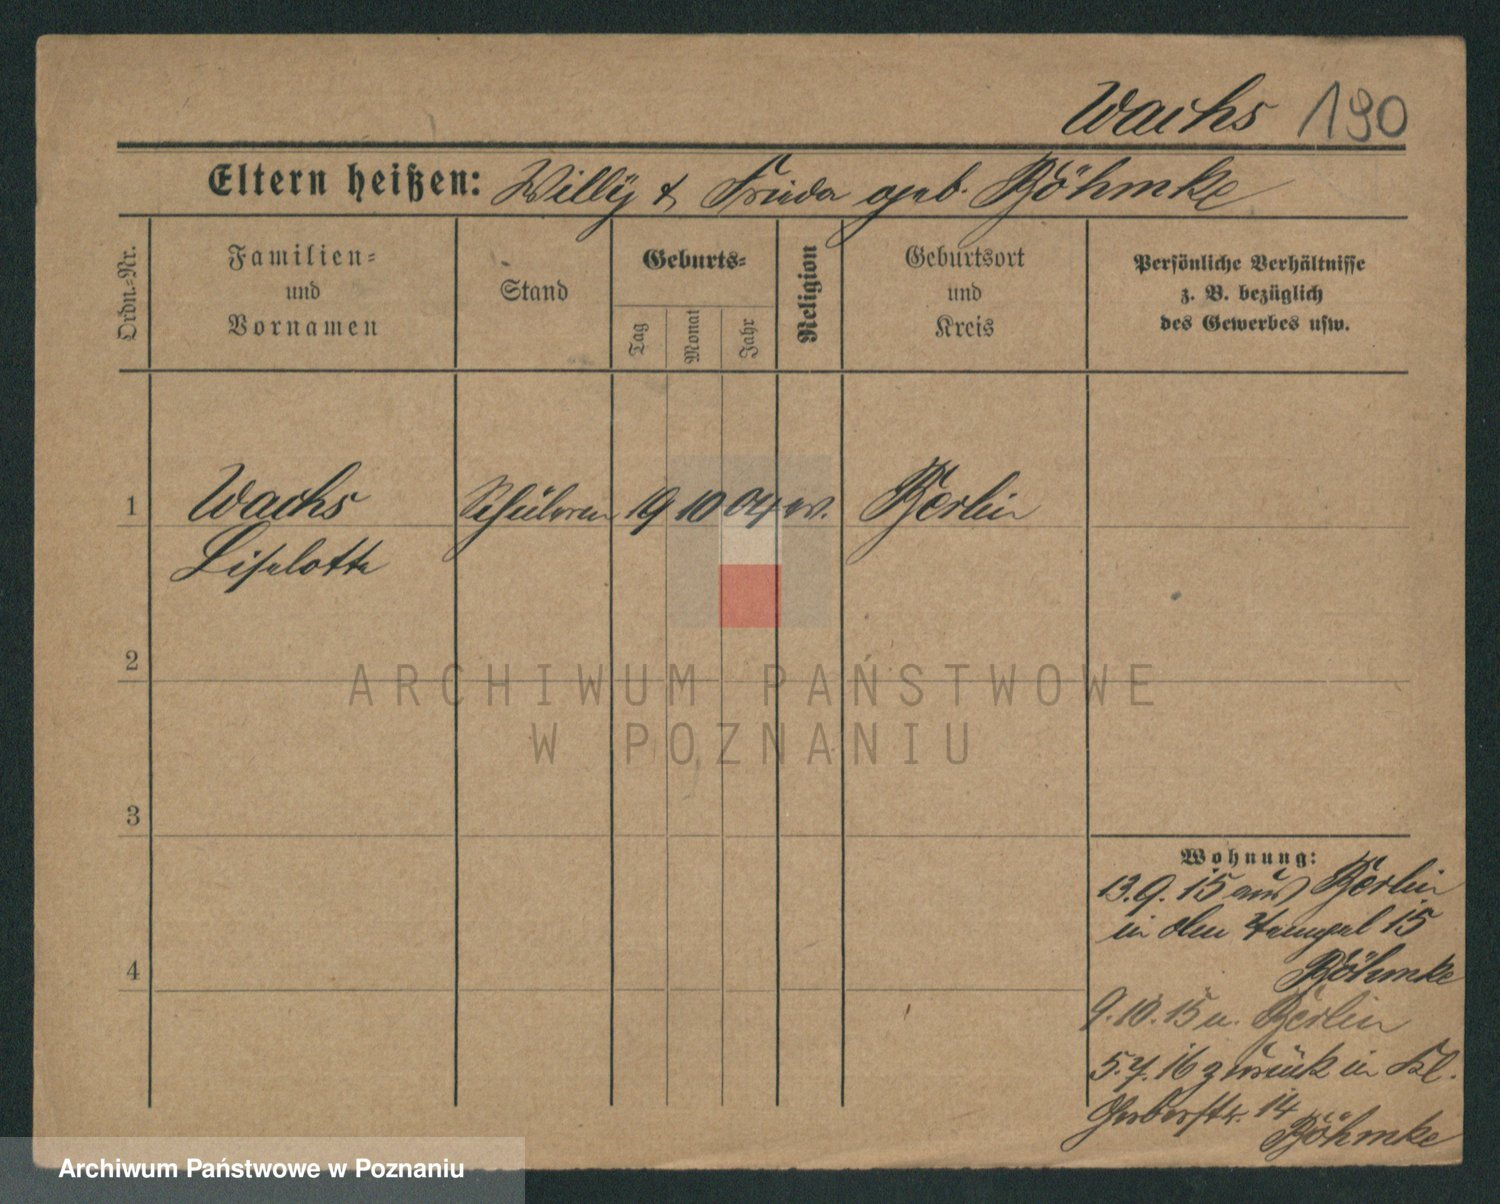 Wachs 190
Eltern heißen: Willy & Frieda geb. Böhmke
Ordn.-Nr.
Familien-
und
Vornamen
Stand
Geburts-
Tag
Monat
Jahr
Religion
Geburtsort
und
Kreis
Persönliche Verhältnisse
z. B. bezüglich
des Gewerbes usw.
1 Wachs Schülerin 19 10 04 ev. Berlin
Liselotte
2
ARCHIWUM PAŃSTWOWE
W POZNANIU
3
Wohnung:
13.9.15 aus Berlin
in 15
Böhmke
4
9.10.15 n. Berlin
5.7.16 zurück in Kl.
Gerberstr. 14
Böhmke
Archiwum Państwowe w Poznaniu